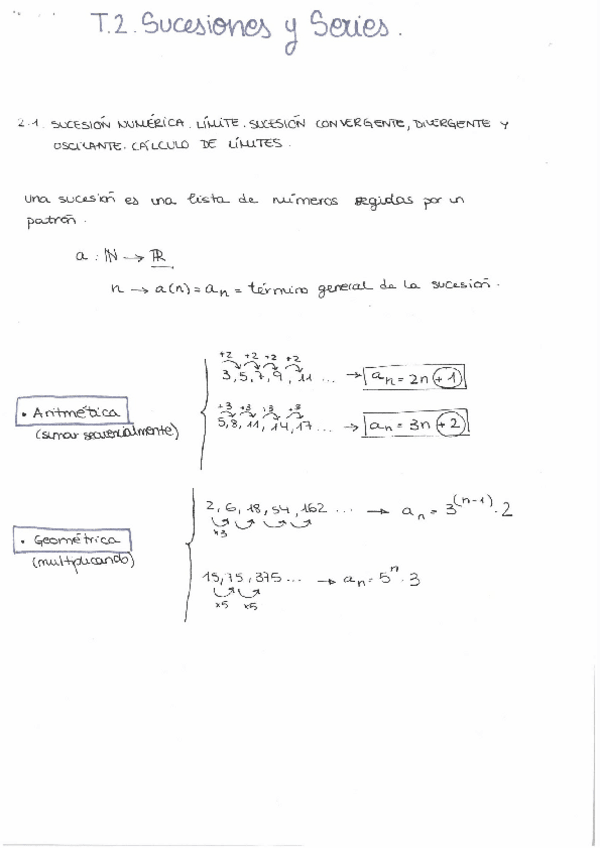 T.2. Sucesiones y Series.
2.1. SUCESIÓN NUMÉRICA. LÍMITE. SUCESIÓN CONVERGENTE, DIVERGENTE Y
OSCILANTE. CÁLCULO DE LÍMITES.
Una sucesión es una lista de números regidas por un
patrón.
a : ℕ → ℝ
n → a(n) = aₙ = término general de la sucesión.
+2 +2 +2 +2
3, 5, 7, 9, 11 ... → aₙ = 2n + 1
• Aritmética
(sumar secuencialmente)
+3 +3 +3 +3
5, 8, 11, 14, 17 ... → aₙ = 3n + 2
2, 6, 18, 54, 162 ... → aₙ = 3^(n-1) · 2
x3
• Geométrica
(multiplicando)
15, 75, 375 ... → aₙ = 5ⁿ · 3
x5 x5